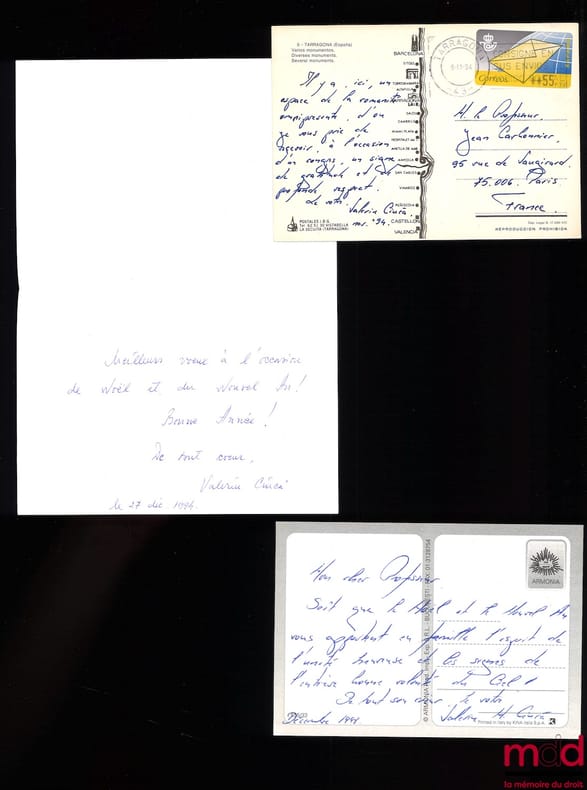 5 - TARRAGONA (España)
Varios monumentos.
Diverses monuments.
Several monuments.
Il y a, ici, un
espace de la romanité
omniprésente, d'où
je vous prie de
recevoir, à l'occasion
d'un congrès, un signe
de gratitude et de
profonde respect.
de votre Valeriu Ciucă
nov. '94.
POSTALES I.B.G.
LA SECUITA (TARRAGONA)
BARCELONA
SITGES
TARRAGONA
SALOU
CAMBRILS
MIAMI PLAYA
AMETLLA DE MAR
AMPOLLA
SAN CARLOS
VINAROZ
CASTELLON
VALENCIA
TARRAGONA
CONSIGNE EN
SUS ENVIOS
Correos
**55
M. le Professeur
Jean Carbonnier,
95 rue de Vaugirard.
75.006. Paris.
France.
REPRODUCCION PROHIBIDA
Meilleurs voeux à l'occasion
de Noël et du Nouvel An!
Bonne Année!
De tout coeur,
Valeriu Ciucă
le 27 déc. 1994.
ARMONIA
Mon cher Professeur
Soit que le Noël et le Nouvel An
vous apportent en famille l'esprit de
l'unité heureuse et les signes de
l'entière bonne volonté du Ciel!
De tout son coeur le votre
Décembre 1998
Valeriu M. Ciucă
Printed in Italy by KINA Italia S.p.A.
mdd
la mémoire du droit